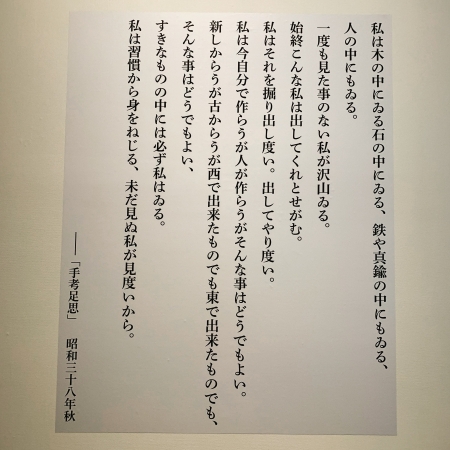 私は木の中にゐる石の中にゐる、鉄や真鍮の中にもゐる、
人の中にもゐる。
一度も見た事のない私が沢山ゐる。
始終こんな私は出してくれとせがむ。
私はそれを掘り出し度い。出してやり度い。
私は今自分で作らうが人が作らうがそんな事はどうでもよい。
新しからうが古からうが西で出来たものでも東で出来たものでも、
そんな事はどうでもよい、
すきなものの中には必ず私はゐる。
私は習慣から身をねじる、未だ見ぬ私が見度いから。
――「手考足思」 昭和三十八年秋